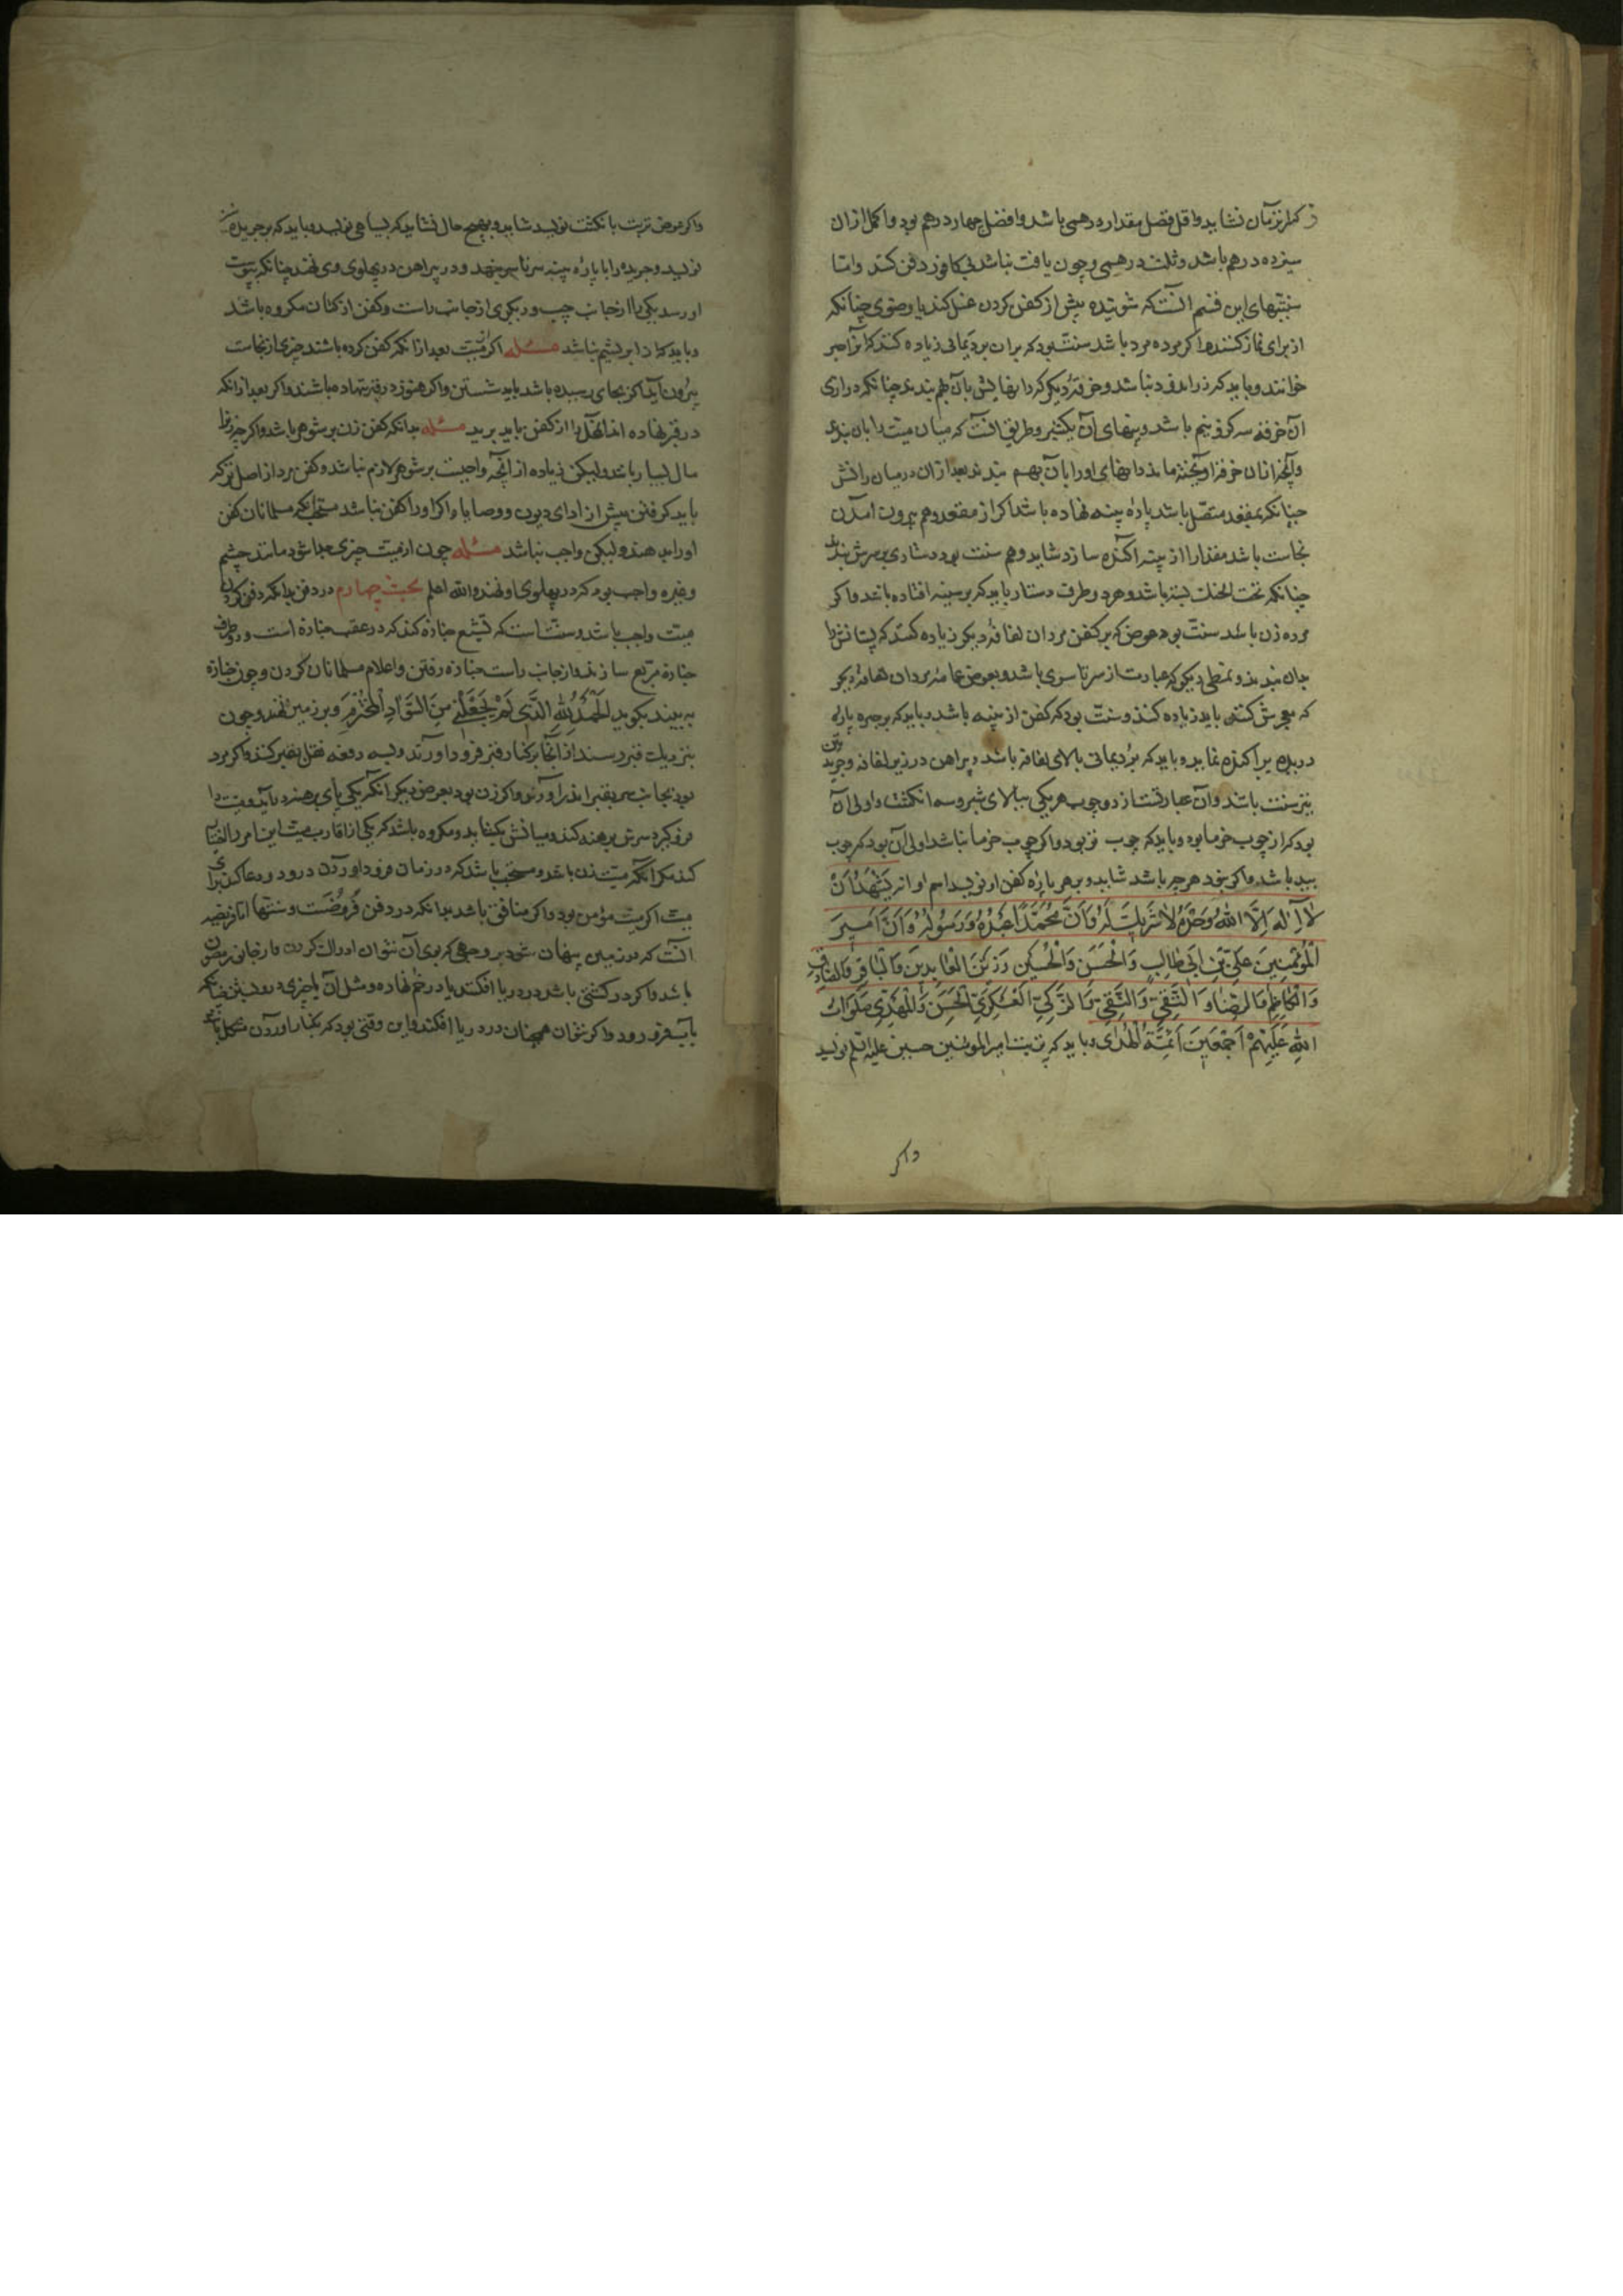 کمتر از آن نشاید و اقل فضل مقدار درهمی باشد و افضل چهار درهم بود و اکمل از آن
سیزده درهم باشد و ثلث درهمی و چون یافت نباشد بی کافور دفن کنند و اما
سنتهای این قسم آنست که شوینده پیش از کفن کردن غسل کند یا وضوی چنانکه
از برای نماز کنند و اگر مرده مرد باشد سنت بود که بران برد یمانی زیاده کنند که آنرا حبر
خوانند و باید که زراندود نباشد و خرقهٔ دیگر که رانهایش بآن بهم بندند چنانکه درازی
آن خرقه سه گز و نیم باشد و پهنای آن یکشبر و طریق آنست که میان میت را بآن بندند
و آنچه از آن خرقه آویخته ماند رانهای او را بآن بهم بندند بعد از آن در میان رانش
چنانکه بمقعد متصل باشد پارهٔ پنبه نهاده باشد اگر از مقعد وهم بیرون آمدن
نجاست باشد مقدارا از پنبه آکنده سازد شاید و هم سنت بود دستاری بر سرش بندند
چنانکه تحت الحنک بسته باشد و هر دو طرف دستار باید که بر سینه افتاده باشد و اگر
مرده زن باشد سنت بود عوض که بر کفن مردان لفافهٔ دیگر زیاده کنند که پستانش را
بدان بندند و نمطی دیگر که عبارت از سرتاسری باشد و بعوض عمامهٔ مردان لفافهٔ دیگر
که معجرش کنی باید زیاده کنند و سنت بود که کفن از پنبه باشد و باید که بر جبره پاره
دریده پراکنده نماید و باید که برد یمانی بالای لفافه باشد و پیراهن در زیر لفافه و جریدتین
نیز سنت باشد و آن عبارتست از دو چوب هر یکی ببالای شبر و سه انگشت و اولی آن
بود که از چوب خرما بود و باید که چوب تر بود و اگر چوب خرما نباشد اولی آن بود که چوب
بید باشد و اگر نبود هرچه باشد شاید و بر هر پارهٔ کفن او نویسد اسم او انه یَشْهَدُ اَنْ
لا اِلهَ اِلّا اللهُ وَحْدَهُ لا شَریکَ لَهُ وَاَنَّ مُحَمَّدًا عَبْدُهُ وَرَسُولُهُ وَاَنَّ اَمیرَ
الْمُؤْمِنینَ عَلیَّ بْنَ اَبی طالِبٍ وَالْحَسَنَ وَالْحُسَیْنَ وَزَیْنَ الْعابِدینَ وَالْباقِرَ وَالصادِقَ
وَالْکاظِمَ وَالرِّضا وَالتَّقِیَّ وَالنَّقِیَّ وَالزَّکِیَّ الْعَسْکَرِیَّ الْحَسَنَ وَالْمَهْدِیَّ صَلَواتُ
اللهِ عَلَیْهِمْ اَجْمَعینَ اَئِمَّةُ الْهُدٰی و باید که بتربت امیر المومنین حسین علیه السلم نویسد
واکر
واکر عوض تربت بانکشت نویسد شاید و بهیچ حال نشاید که بسیاهی نویسد و باید که بر جریده نیز
نویسد و جریده را با پاره پنبه سرتاسر بنهد و در پیراهن در پهلوی وی نهند چنانکه بپوست
او رسد یکی را از جانب چپ و دیگری از جانب راست و کفن از کتان مکروه باشد
و باید که از ابریشم نباشد مسئله اگر میت بعد از آنکه کفن کرده باشند چیزی از نجاست
بیرون آید اگر بجای رسیده باشد باید شستن و اگر هنوز در قبر ننهاده باشند و اگر بعد از آنکه
در قبر نهاده اند آنمحل را از کفن بباید برید مسئله بدانکه کفن زن بر شوهر باشد و اگر چه زنرا
مال بسیار باشد و لیکن زیاده از آنچه واجبست بر شوهر لازم نباشد و کفن مرد از اصل ترکه
باید گرفتن پیش از ادای دیون و وصایا و اگر او را کفن نباشد مستحب که مسلمانان کفن
او را بدهند و لیکن واجب نباشد مسئله چون از میت چیزی جدا شود مانند چشم
و غیره واجب بود که در پهلوی او نهند والله اعلم بحث چهارم در دفن بدانکه دفن کردن
میت واجب باشد و سنت است که تشیع جنازه کند که در عقب جنازه است و دو طرف
جنازه مربع سازند و از جانب راست جنازه رفتن و اعلام مسلمانان کردن و چون جنازه
به بیند بگوید الْحَمْدُ لِلّهِ الَّذی لَمْ یَجْعَلْنی مِنَ السَّوادِ الْمُخْتَرَمِ و بر زمین نهند و چون
بنزدیک قبر رسند از آنجا بر کنار قبر فرود آورند و بسه دفعه نقل بقبر کنند و اگر مرد
بود بجانب سر بقبر اندر آورند و اگر زن بود بعرض دیگر آنکه یکی پای برهنه در آید و میت را
فروگیرد سرش برهنه کند و میانش بکشاید و مکروه باشد که یکی از اقارب میت این امر را
کند مگر آنکه میت زن باشد و مستحب باشد که در زمان فرود آوردن درود و دعا کند برای
میت اگر میت مؤمن بود و اگر منافق باشد بدانکه در دفن فروضست و سنتها اما فریضه
آنست که در زمین پنهان شود بر وجهی که بوی آن نتوان ادراک کردن و ارجانی
باشد و اگر در کشتی باشد در دریا افکند یا در خم نهاده و مثل آن یا چیزی
بآب فرو رود و اگر نتوان همچنان در دریا افکند و این وقتی بود که بکنار آوردن مشکل باشد